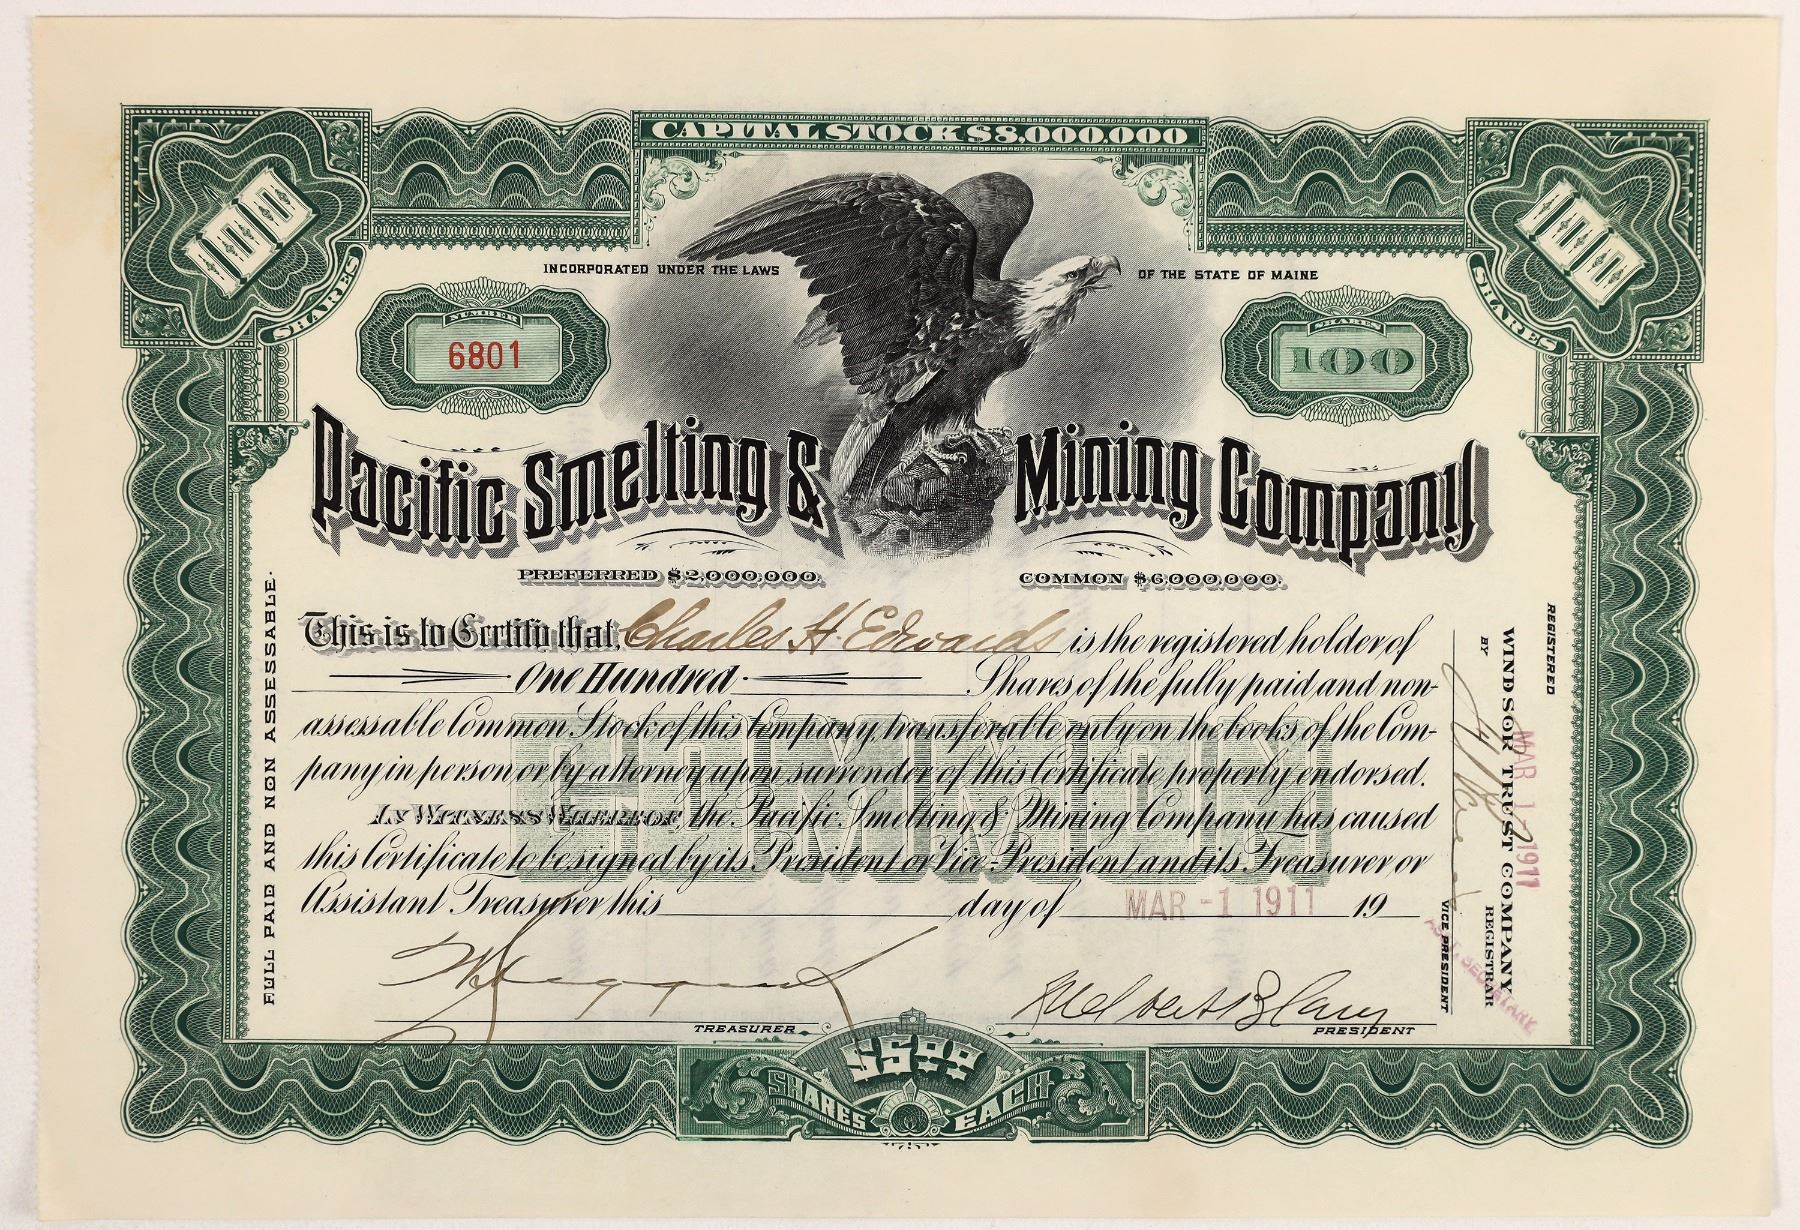 CAPITAL STOCK $8,000,000
100
SHARES
100
SHARES
INCORPORATED UNDER THE LAWS OF THE STATE OF MAINE
NUMBER
6801
SHARES
100
Pacific Smelting & Mining Company
PREFERRED $2,000,000. COMMON $6,000,000.
This is to Certify that Charles H. Edwards is the registered holder of
One Hundred Shares of the fully paid and non-
assessable Common Stock of this Company, transferable only on the books of the Com-
pany in person or by attorney upon surrender of this Certificate properly endorsed.
In Witness Whereof, the Pacific Smelting & Mining Company has caused
this Certificate to be signed by its President or Vice-President and its Treasurer or
Assistant Treasurer this day of MAR -1 1911 19
COMMON
TREASURER
PRESIDENT
$5.00
SHARES EACH
FULL PAID AND NON ASSESSABLE.
REGISTERED
WINDSOR TRUST COMPANY
REGISTRAR
BY
VICE PRESIDENT
MAR 1 - 1911
ASST. SECRETARY